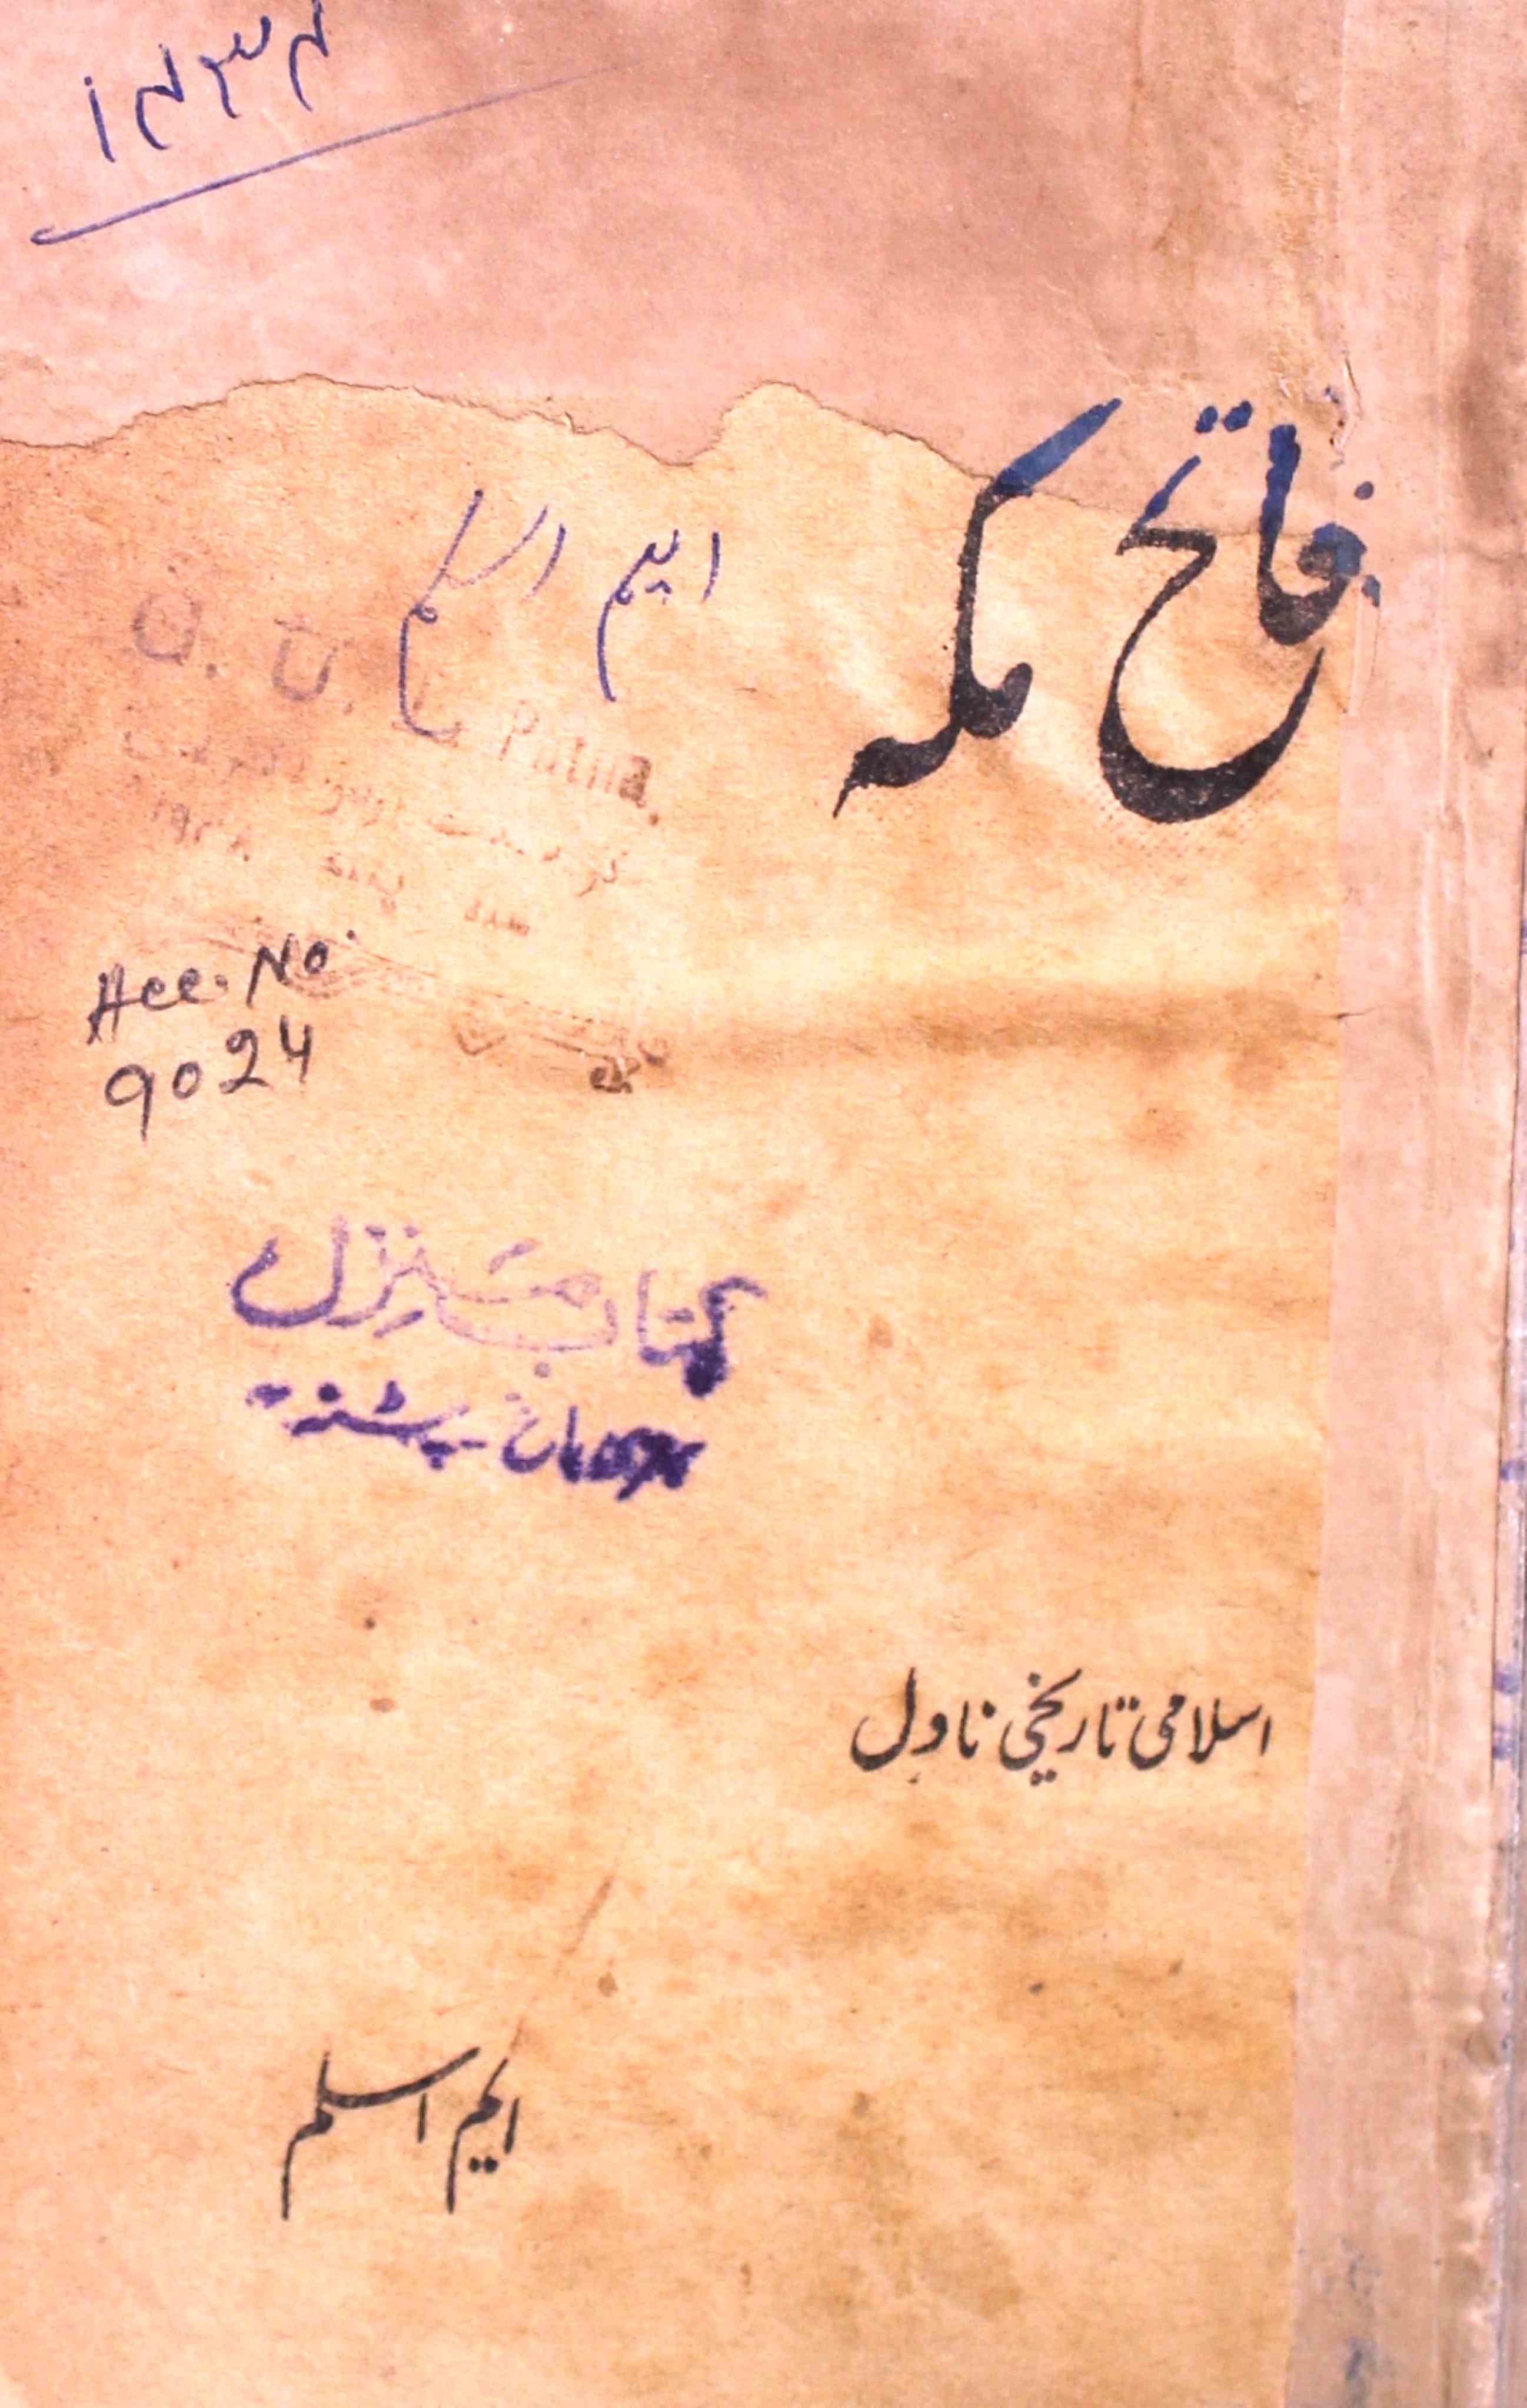 ۱۲۳۲
فاتح مکہ
ایم اسلم
G. U. L. Patna.
Acc. No.
9024
کتاب منزل
سبزی باغ پٹنہ
اسلامی تاریخی ناول
ایم اسلم